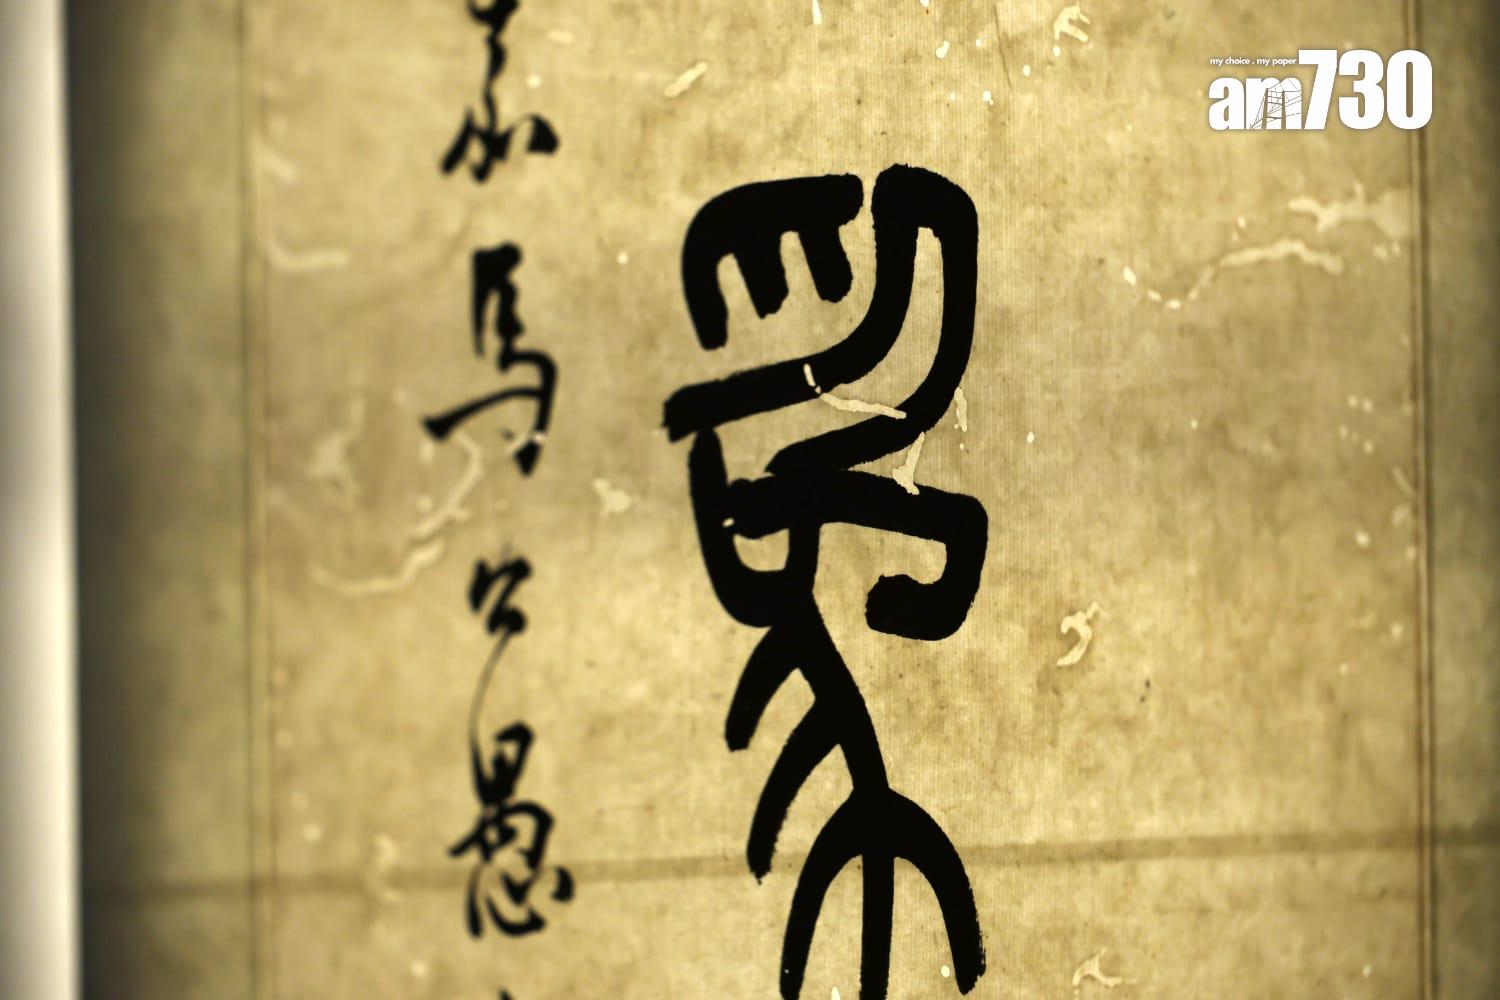 my choice . my paper
am730
為
嘉馬公愚